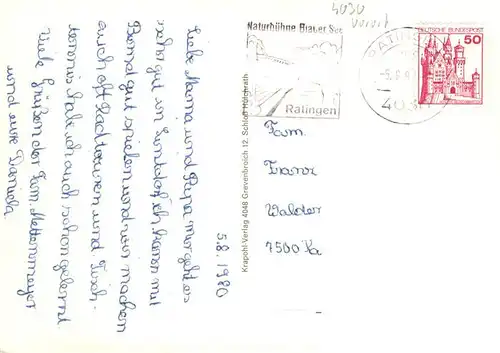 4030
Vorort
Naturbühne Blauer See
Ratingen
RATINGEN
-5.8.
403
DEUTSCHE BUNDESPOST
50
5.8.1980
Liebe Mama und Papa mir geht es
sehr gut in Lintdorf ich kann mit
Bernd gut spielen und wir machen
auch oft Radtouren und Tisch-
tennis habe ich auch schon gelernt
Viele Grüßen der Fam. Mettenmeyer
und eure Daniela.
Krapohl-Verlag 4048 Grevenbroich 12, Schloß Hülchrath
Fam.
Franz
Walder
7500 Ka